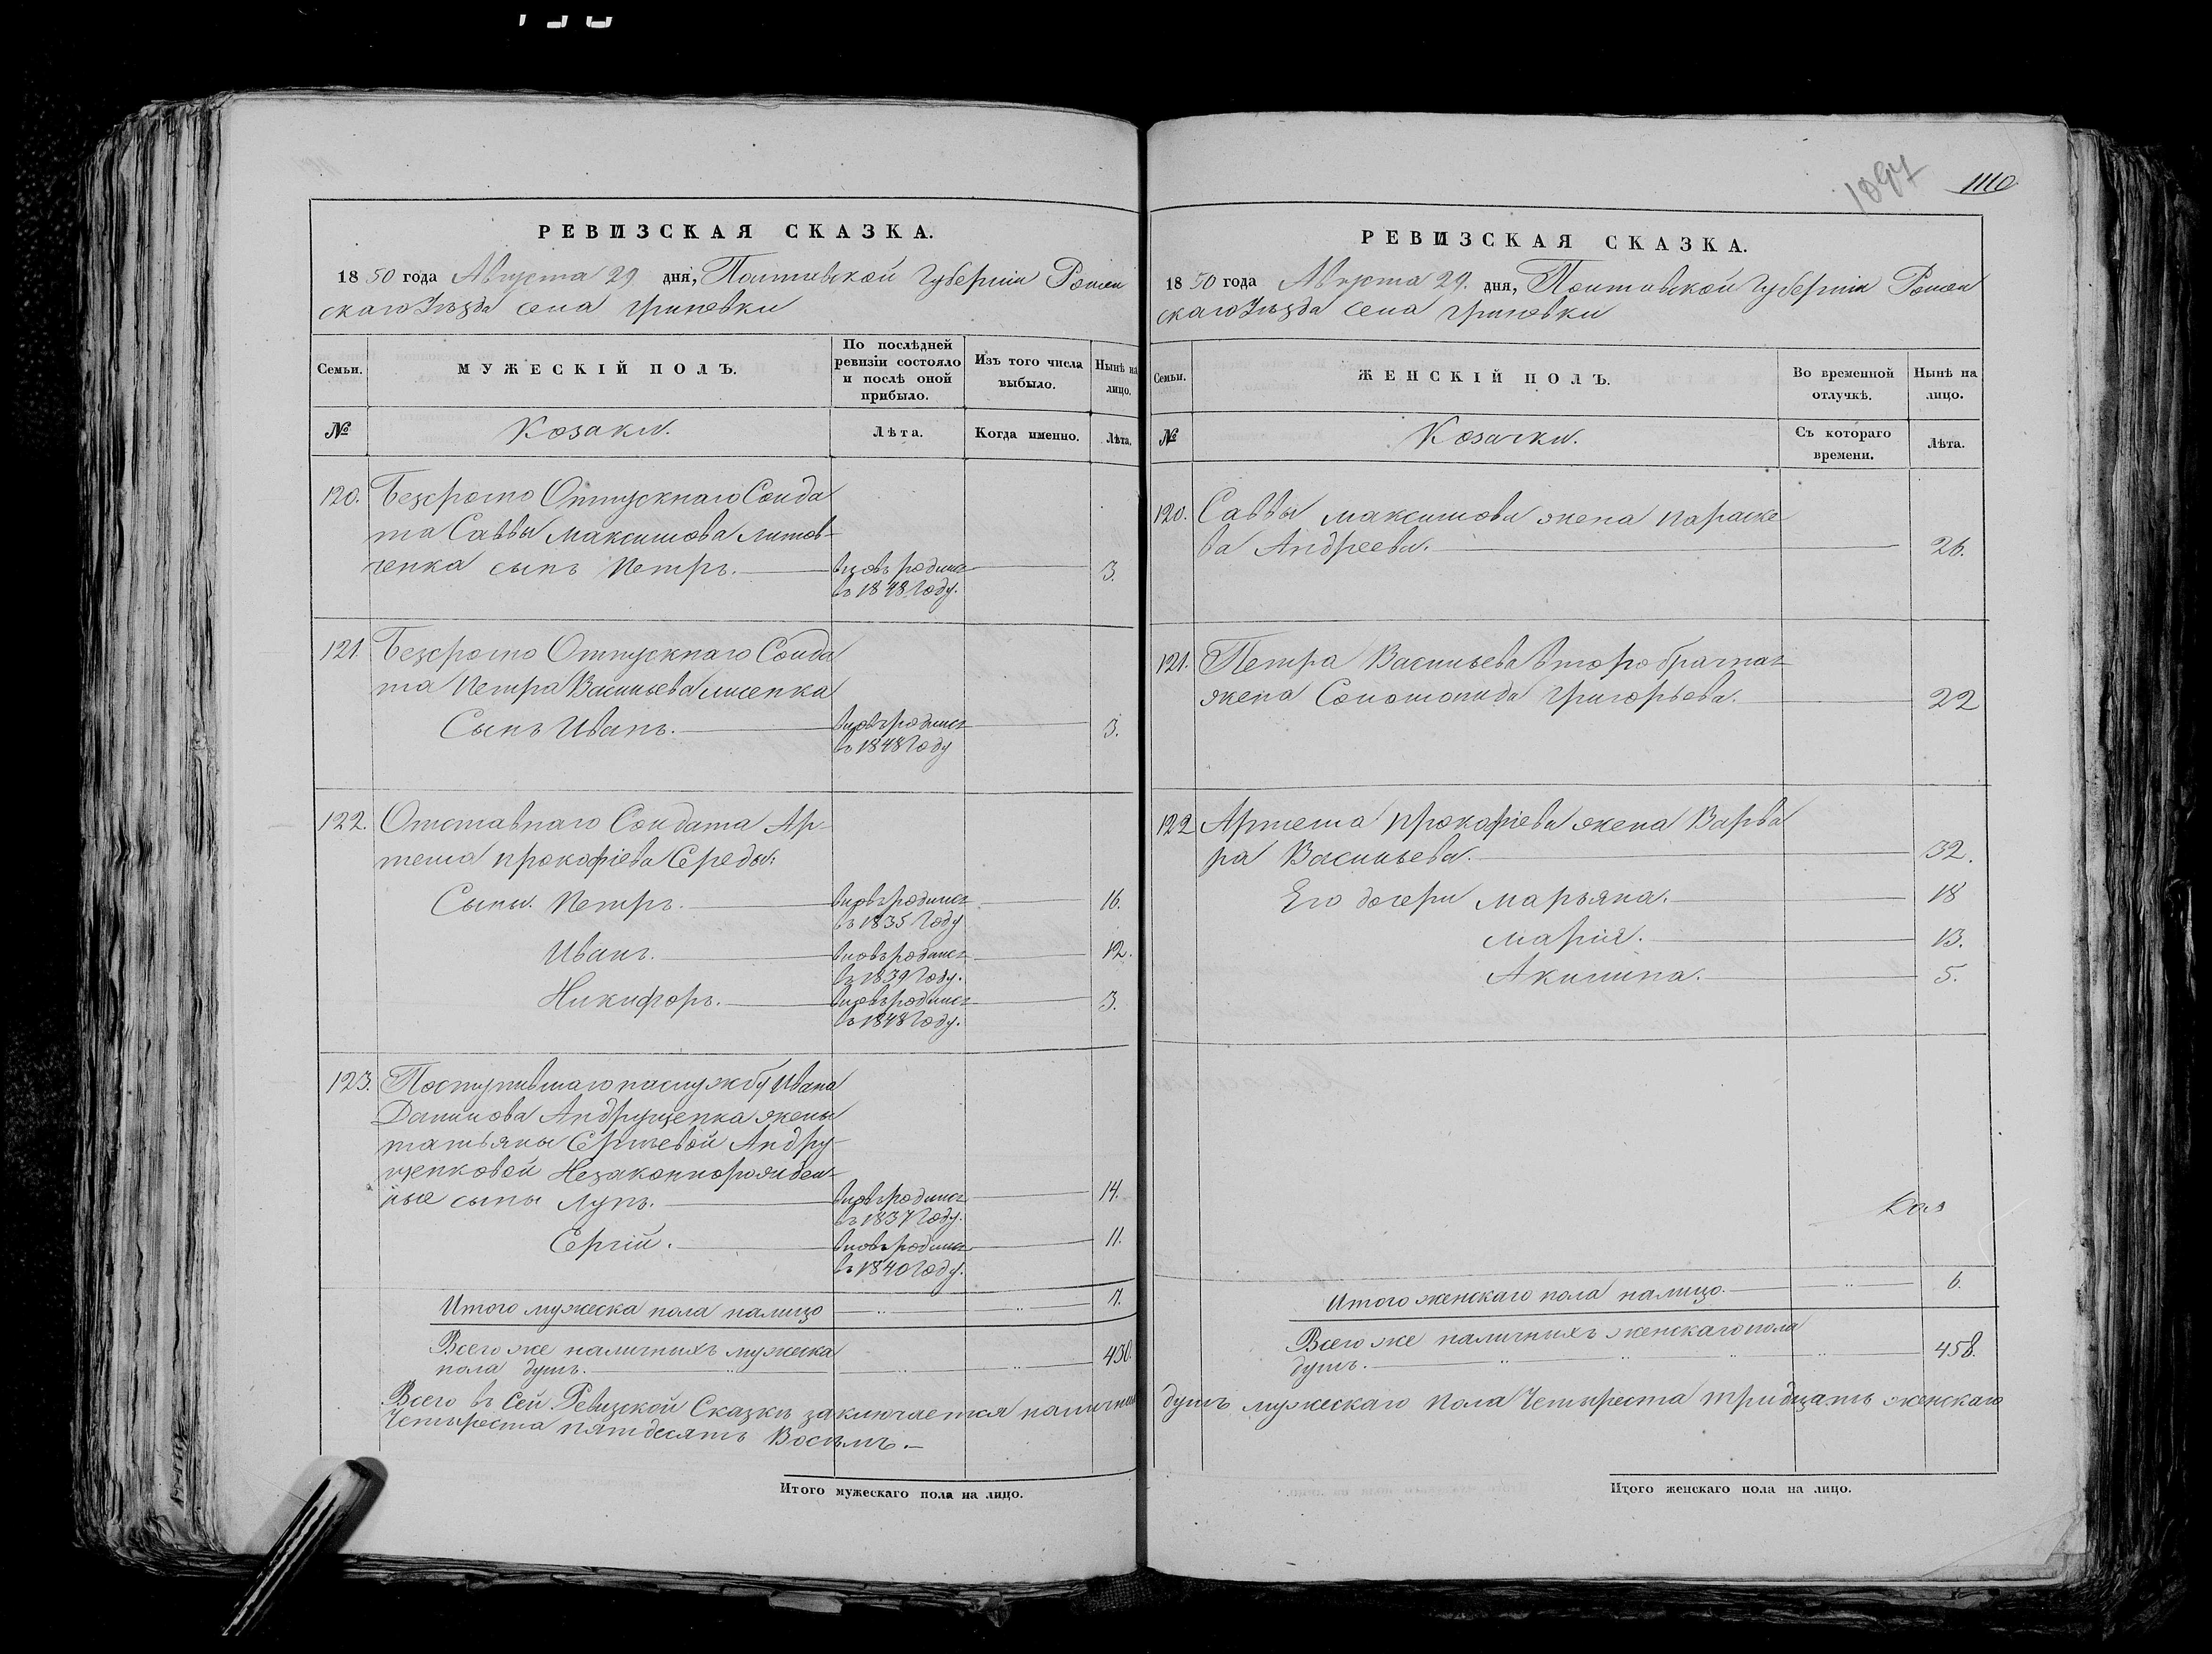 РЕВИЗСКАЯ СКАЗКА.
1850 года Августа 29 дня, Полтавской Губерніи Ромен
скаго Уѣзда села Гриневки
Семьи.
МУЖЕСКІЙ ПОЛЪ.
По послѣдней
ревизіи состояло
и послѣ оной
прибыло.
Изъ того числа
выбыло.
Нынѣ на
лицо.
№
Козаки.
Лѣта.
Когда именно.
Лѣта.
120. Безсрочно Отпускнаго Солда
та Саввы Максимова литов-
ченка сынъ Петръ. вновь родился 3.
въ 1848 Году.
121. Безсрочно Отпускнаго Солда
та Петра Васильева лисенка
Сынъ Иванъ. вновь родился 3.
въ 1848 Году
122. Отставнаго Солдата Ар-
тема прокофіева Середы:
Сыны. Петръ. вновь родился 16.
въ 1835 Году
Иванъ. вновь родился 12.
въ 1839 Году.
Никифоръ. вновь родился 3.
въ 1848 Году.
123. Поступившаго на службу Ивана
Данилова Андрущенка жены
татьяны Сергѣевой Андру-
щенковой Незаконнорожден-
ные сыны Лупъ. вновь родился 14.
въ 1837 Году.
Сергій. вновь родился 11.
въ 1840 Году.
Итого мужеска пола на лицо 7.
Всего же наличныхъ мужеска
пола душъ. 430.
Всего въ Сей Ревизской Сказкѣ заключается наличныхъ
Четыреста пятдесятъ Восемъ.
Итого мужескаго пола на лицо.
1097
1110
РЕВИЗСКАЯ СКАЗКА.
1850 года Августа 29. дня, Полтавской Губерніи Ромен
скаго Уѣзда села Гриневки
Семьи.
ЖЕНСКІЙ ПОЛЪ.
Во временной
отлучкѣ.
Нынѣ на
лицо.
№
Козачки.
Съ котораго
времени.
Лѣта.
120. Саввы максимова жена параске
ва Андреева. 26.
121. Петра Васильева второбрачная
жена Соломонида Григорьева. 22
122 Артема прокофіева жена Варва
ра Васильева. 32.
Его дочери марьяна. 18
марія. 13.
Акилина. 5.
Итого женскаго пола на лицо. 6.
Всего же наличныхъ женскаго пола
душъ. 458.
душъ мужескаго пола Четыреста тридцать женскаго
Итого женскаго пола на лицо.